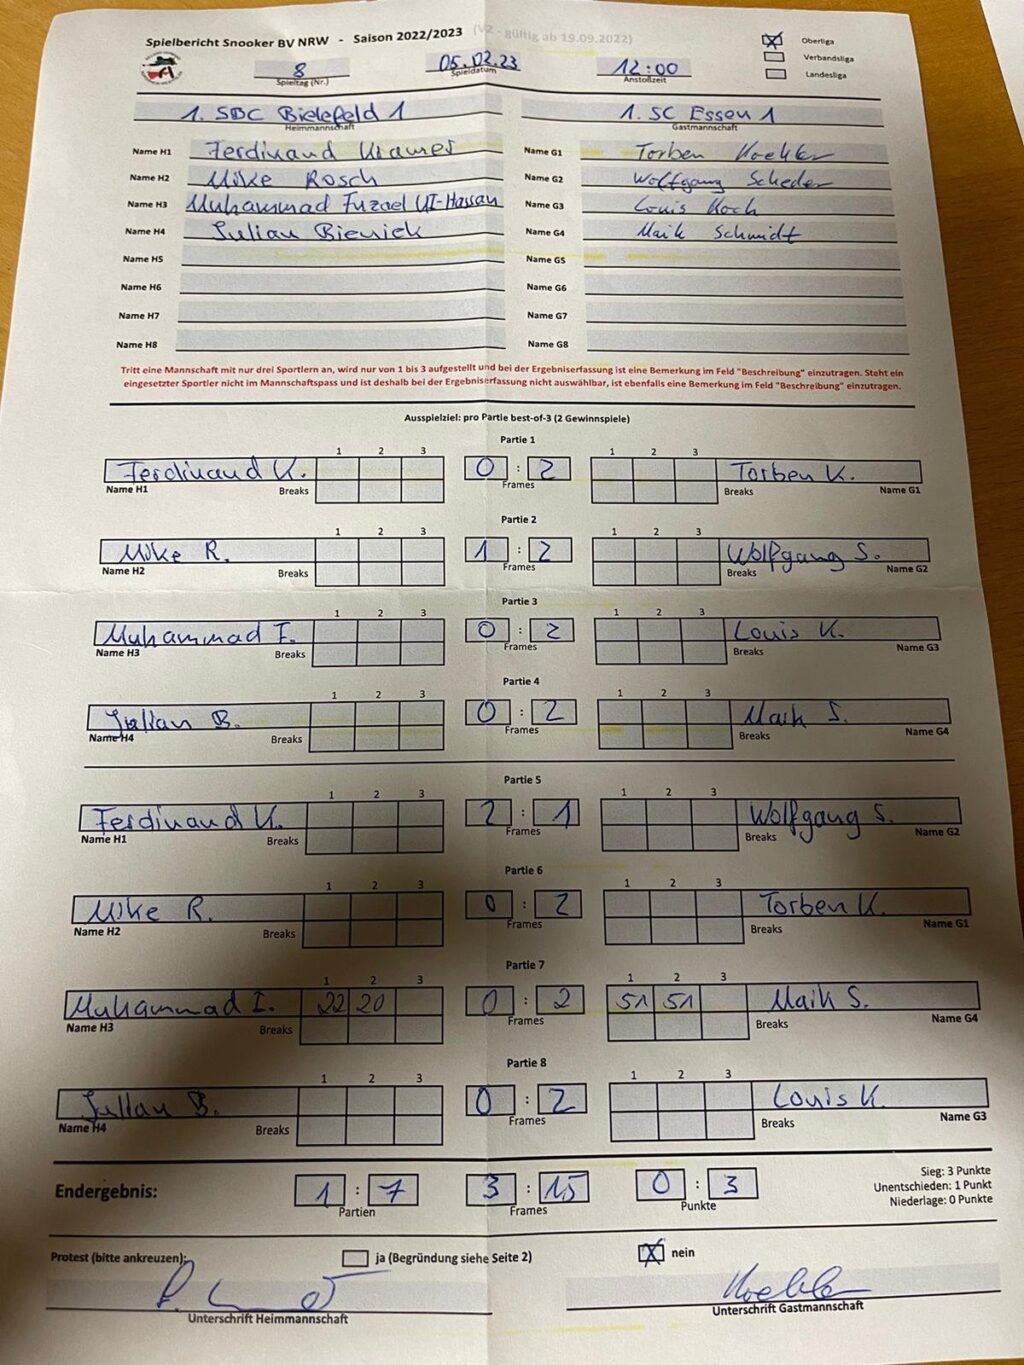 Spielbericht Snooker BV NRW - Saison 2022/2023 (V2 - gültig ab 19.09.2022)
8 05.02.23 12:00
Spieltag (Nr.) Spieldatum Anstoßzeit
X Oberliga
Verbandsliga
Landesliga
1. SBC Bielefeld 1 1. SC Essen 1
Heimmannschaft Gastmannschaft
Name H1 Ferdinand Kramer Name G1 Torben Koehler
Name H2 Mike Rosch Name G2 Wolfgang Scheder
Name H3 Muhammad Fuzael Ul-Hassan Name G3 Louis Koch
Name H4 Julian Bieniek Name G4 Maik Schmidt
Name H5 Name G5
Name H6 Name G6
Name H7 Name G7
Name H8 Name G8
Tritt eine Mannschaft mit nur drei Sportlern an, wird nur von 1 bis 3 aufgestellt und bei der Ergebniserfassung ist eine Bemerkung im Feld "Beschreibung" einzutragen. Steht ein
eingesetzter Sportler nicht im Mannschaftspass und ist deshalb bei der Ergebniserfassung nicht auswählbar, ist ebenfalls eine Bemerkung im Feld "Beschreibung" einzutragen.
Ausspielziel: pro Partie best-of-3 (2 Gewinnspiele)
Partie 1
1 2 3 1 2 3
Ferdinand K. 0 : 2 Torben K.
Name H1 Breaks Frames Breaks Name G1
Partie 2
1 2 3 1 2 3
Mike R. 1 : 2 Wolfgang S.
Name H2 Breaks Frames Breaks Name G2
Partie 3
1 2 3 1 2 3
Muhammad F. 0 : 2 Louis K.
Name H3 Breaks Frames Breaks Name G3
Partie 4
1 2 3 1 2 3
Julian B. 0 : 2 Maik S.
Name H4 Breaks Frames Breaks Name G4
Partie 5
1 2 3 1 2 3
Ferdinand K. 2 : 1 Wolfgang S.
Name H1 Breaks Frames Breaks Name G2
Partie 6
1 2 3 1 2 3
Mike R. 0 : 2 Torben K.
Name H2 Breaks Frames Breaks Name G1
Partie 7
1 2 3 1 2 3
Muhammad F. 22 20 0 : 2 51 51 Maik S.
Name H3 Breaks Frames Breaks Name G4
Partie 8
1 2 3 1 2 3
Julian B. 0 : 2 Louis K.
Name H4 Breaks Frames Breaks Name G3
Endergebnis: 1 : 7 3 : 15 0 : 3
Partien Frames Punkte
Sieg: 3 Punkte
Unentschieden: 1 Punkt
Niederlage: 0 Punkte
Protest (bitte ankreuzen): ja (Begründung siehe Seite 2) X nein
Koehler
Unterschrift Heimmannschaft Unterschrift Gastmannschaft